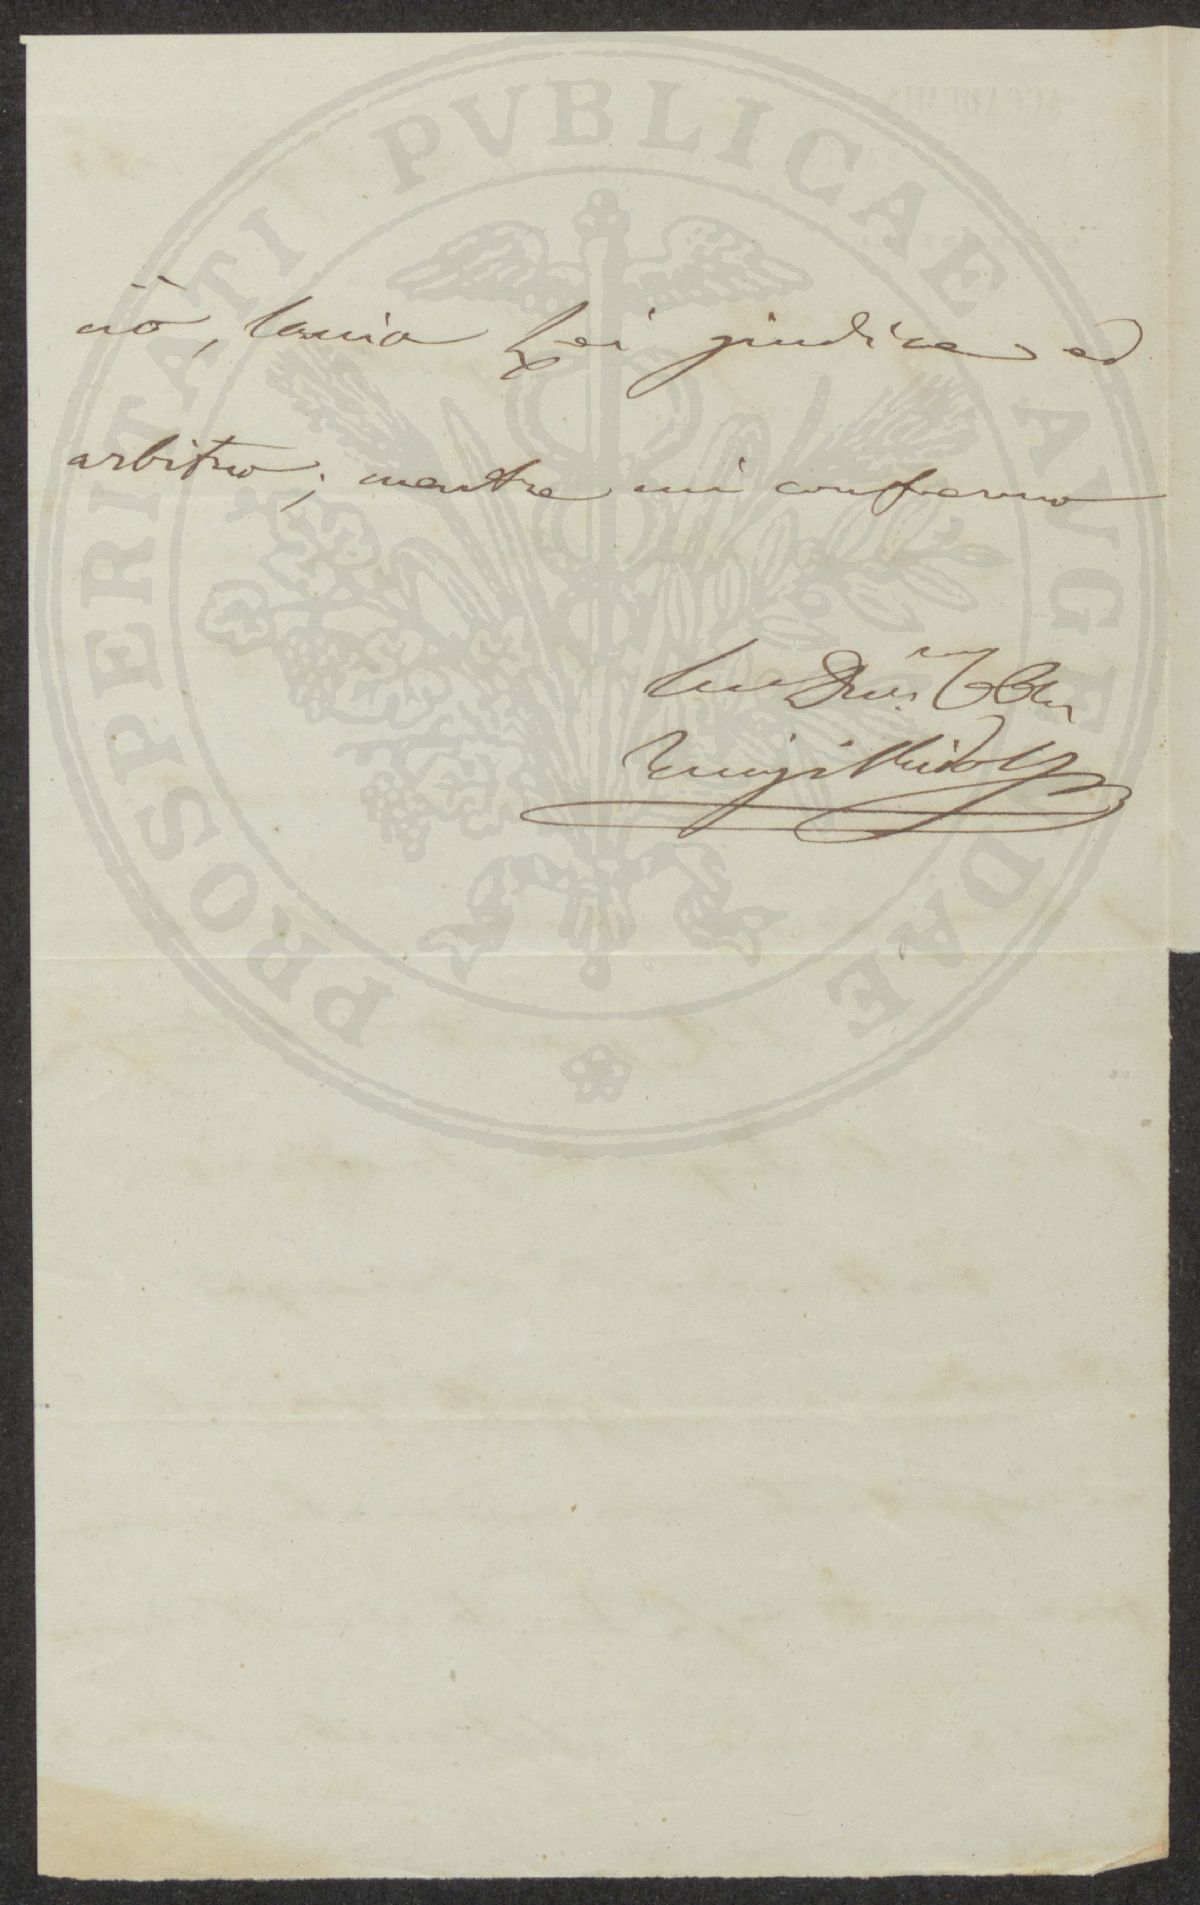 PROSPERITATI PVBLICAE AVGENDAE
ciò, lascio Lei giudice ed
arbitro; mentre mi confermo
Suo Dev.
Luigi Ridolfi